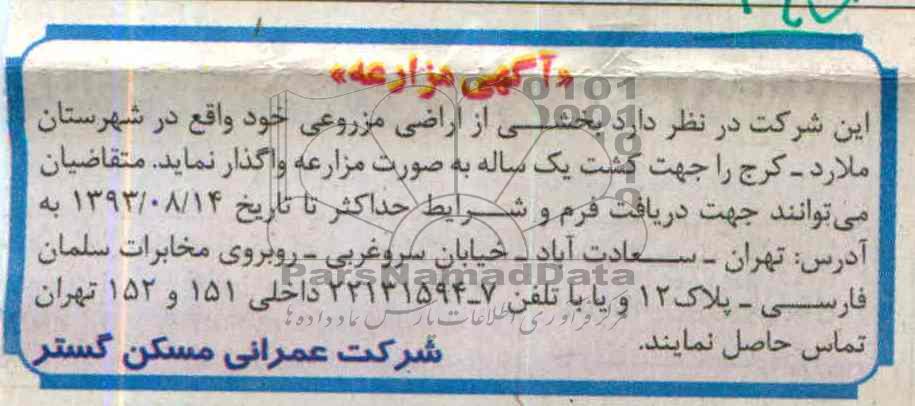 «آگهی مزارعه»
این شرکت در نظر دارد بخشی از اراضی مزروعی خود واقع در شهرستان
ملارد ـ کرج را جهت کشت یک ساله به صورت مزارعه واگذار نماید. متقاضیان
می‌توانند جهت دریافت فرم و شرایط حداکثر تا تاریخ ۱۳۹۳/۰۸/۱۴ به
آدرس: تهران ـ سعادت آباد ـ خیابان سروغربی ـ روبروی مخابرات سلمان
فارسی ـ پلاک۱۲ و یا با تلفن ۷ـ۲۲۱۳۱۵۹۴ داخلی ۱۵۱ و ۱۵۲ تهران
تماس حاصل نمایند.
شرکت عمرانی مسکن گستر
ParsNamadData
مرکز فرآوری اطلاعات پارس نماد داده ها